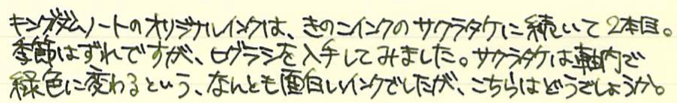 キングダムノートのオリジナルインクは、きのこインクのサクラタケに続いて2本目。
季節はずれですが、ヒグラシを入手してみました。サクラタケは軸内で
緑色に変わるという、なんとも面白いインクでしたが、こちらはどうでしょうか。